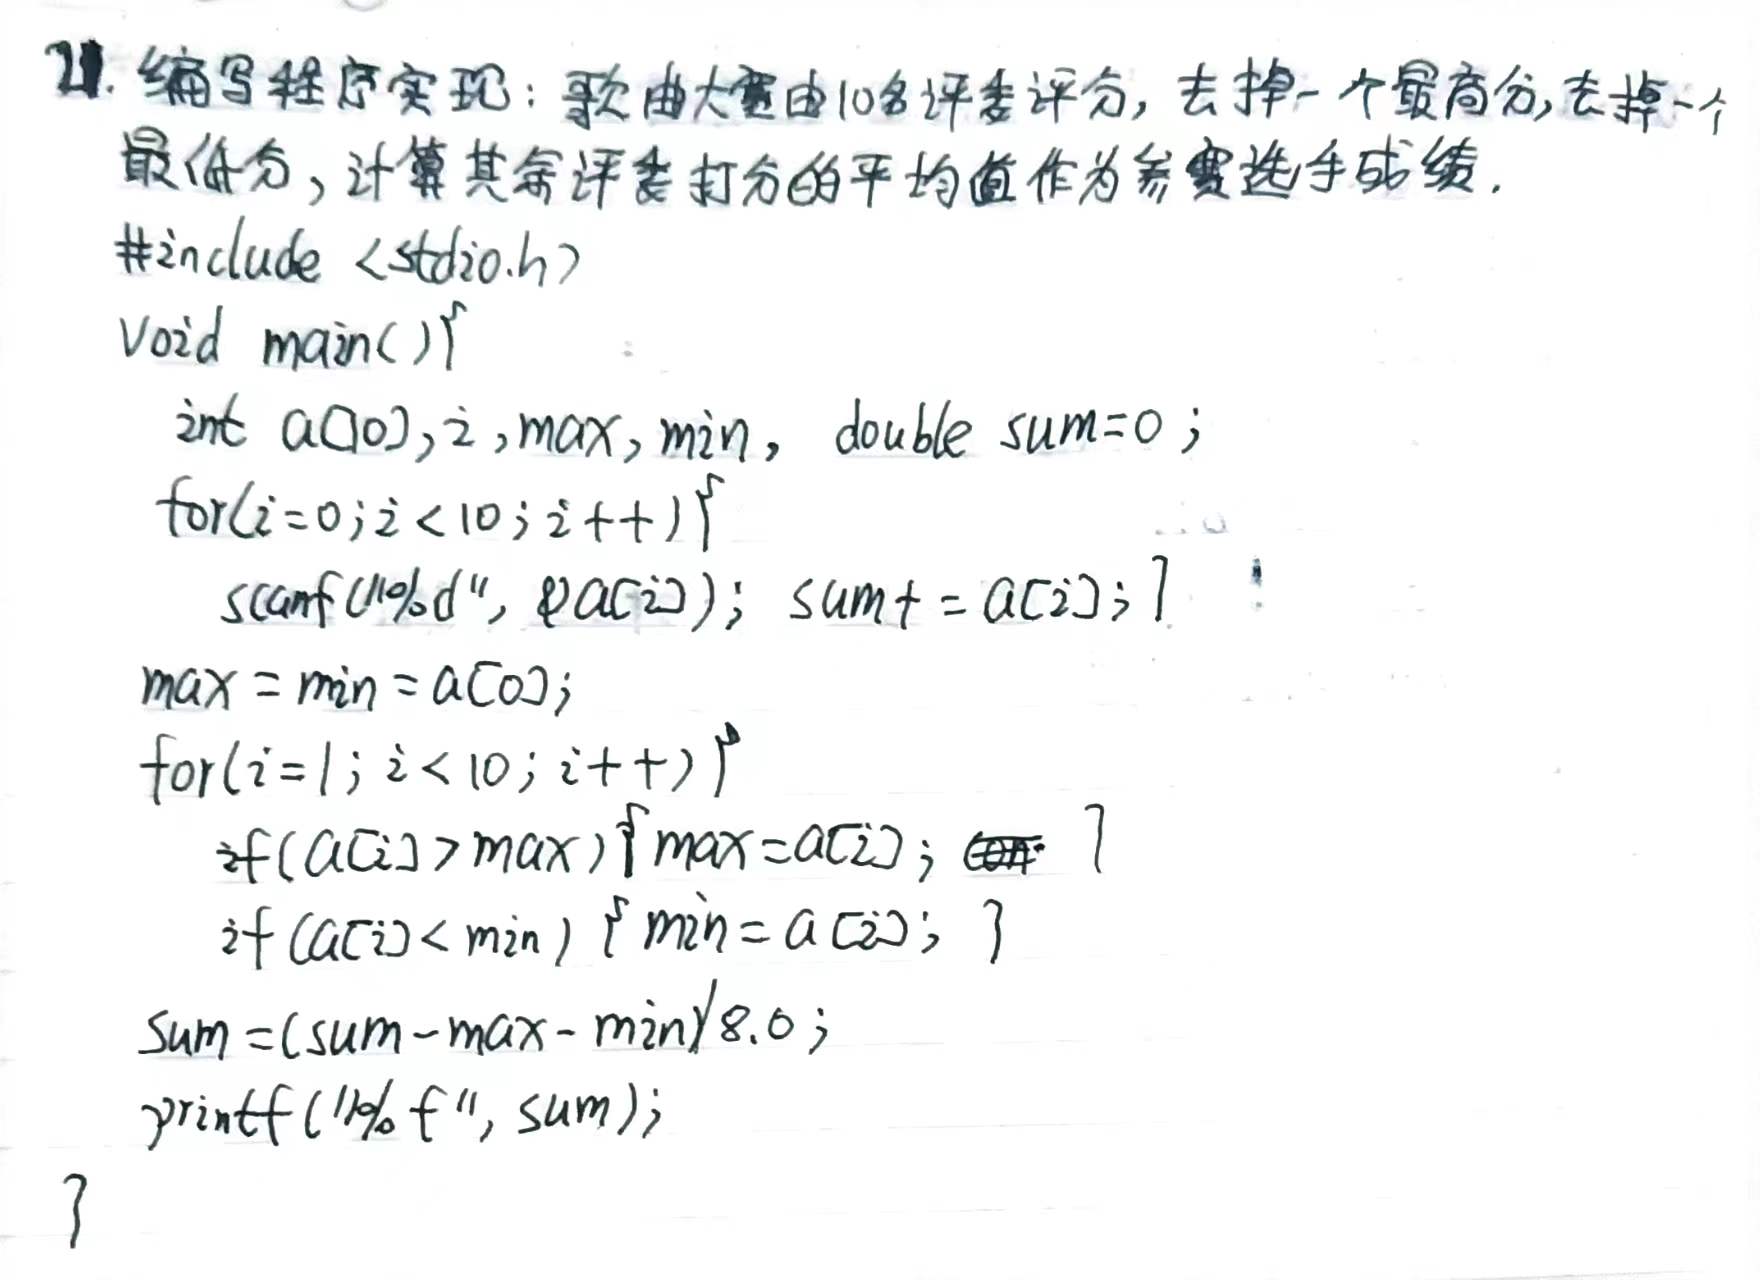 21. 编写程序实现：歌曲大赛由10名评委评分，去掉一个最高分，去掉一个
最低分，计算其余评委打分的平均值作为参赛选手成绩.
#include <stdio.h>
void main(){
int a[10],i,max,min, double sum=0;
for(i=0;i<10;i++){
scanf("%d",&a[i]); sum+=a[i];}
max=min=a[0];
for(i=1;i<10;i++){
if(a[i]>max){max=a[i]; }
if(a[i]<min){min=a[i]; }
sum=(sum-max-min)/8.0;
printf("%f",sum);
}